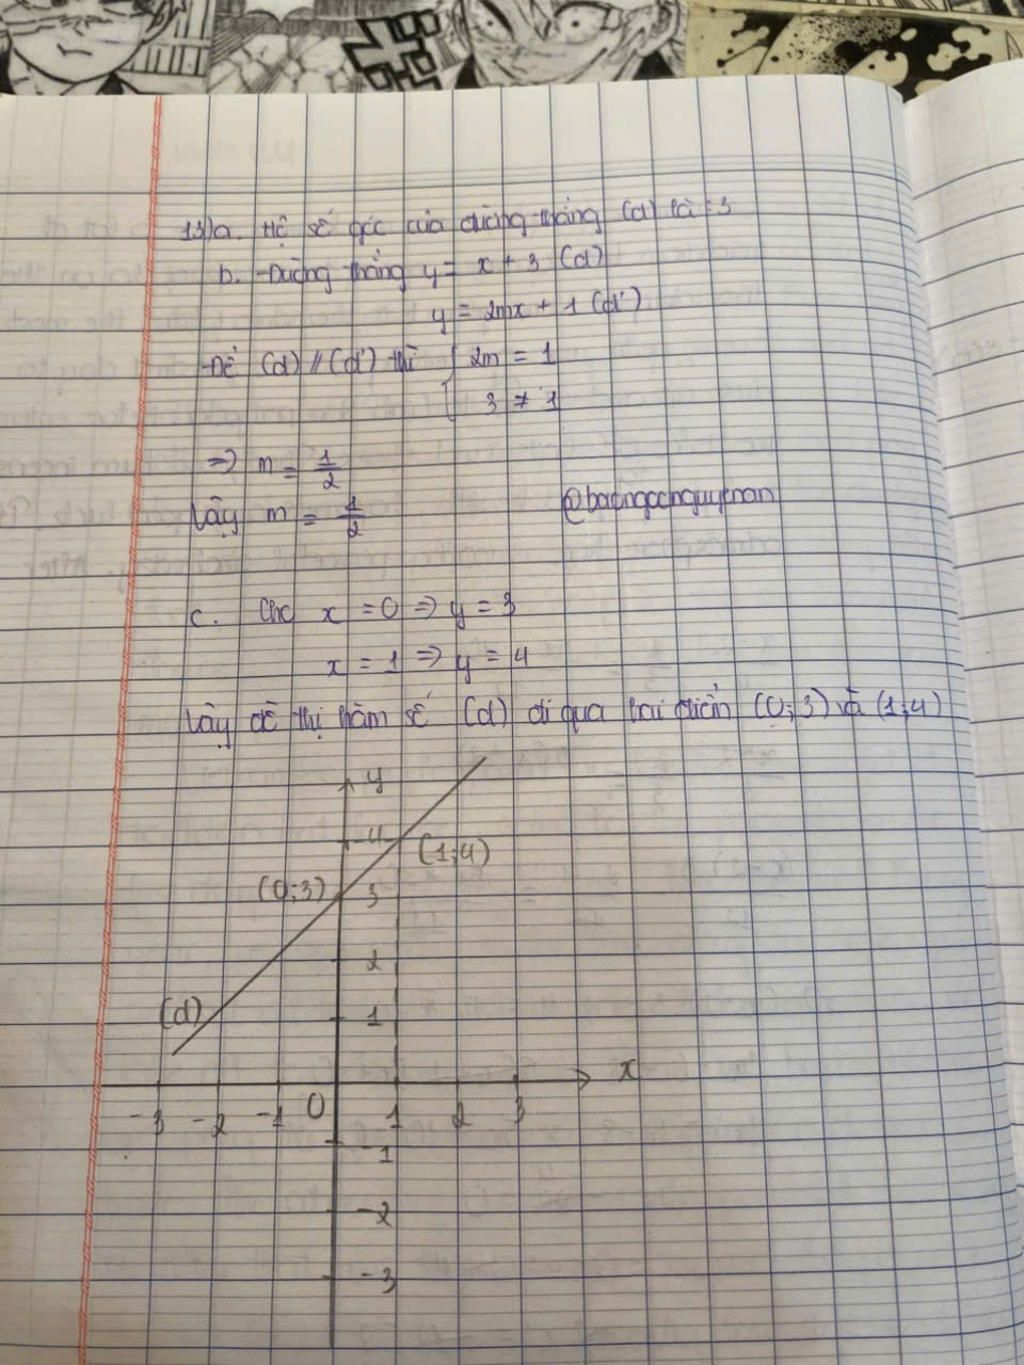 13)a. Hệ số góc của đường thẳng (d) là : 3
b. -Đường thẳng y = x + 3 (d)
y = 2mx + 1 (d')
-Để (d) // (d') thì { 2m = 1
3 ≠ 1
=> m = 1/2
Vậy m = 1/2
c. Cho x = 0 => y = 3
x = 1 => y = 4
Vậy đồ thị hàm số (d) đi qua hai điểm (0;3) và (1;4)
y
4
(1;4)
(0;3) 3
2
(d) 1
x
-3 -2 -1 0 1 2 3
-1
-2
-3